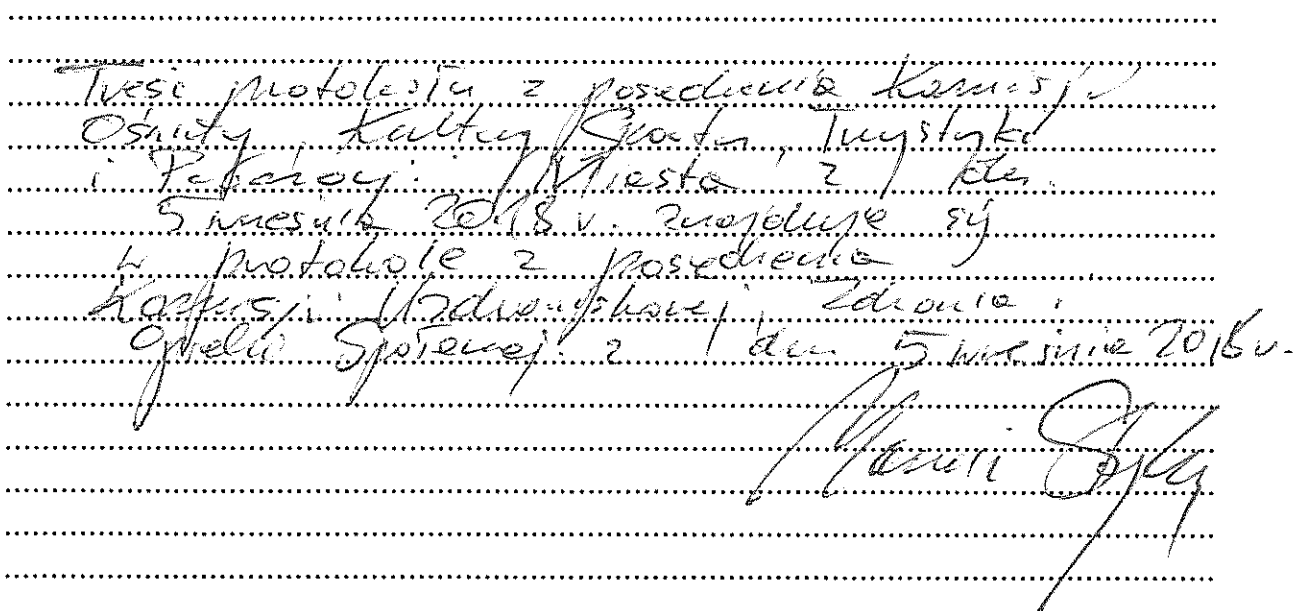 Treść protokołu z posiedzenia Komisji
Oświaty, Kultury Sportu, Turystyki
i Promocji Miasta z dn.
5 września 2018 r. znajduje się
w protokole z posiedzenia
Komisji Uzdrowiskowej, Zdrowia i
Opieki Społecznej z dn. 5 września 2018 r.